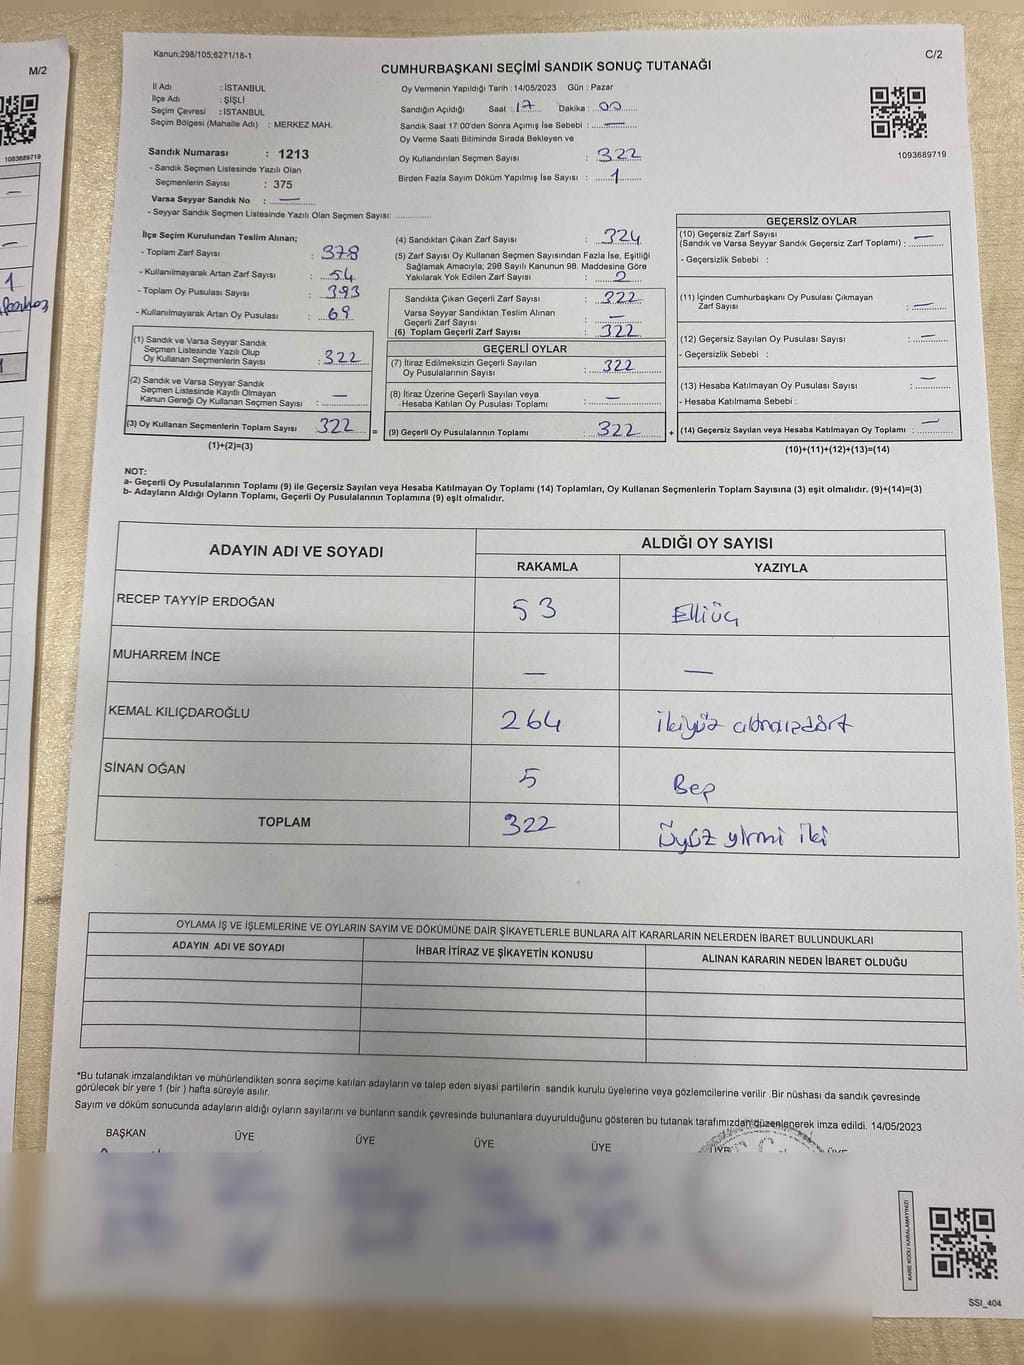 M/2
1093689719
1
Kanun;298/105;6271/18-1
C/2
CUMHURBAŞKANI SEÇİMİ SANDIK SONUÇ TUTANAĞI
İl Adı : İSTANBUL
İlçe Adı : ŞİŞLİ
Seçim Çevresi : İSTANBUL
Seçim Bölgesi (Mahalle Adı) : MERKEZ MAH.
Sandık Numarası : 1213
- Sandık Seçmen Listesinde Yazılı Olan
Seçmenlerin Sayısı : 375
Varsa Seyyar Sandık No : —
- Seyyar Sandık Seçmen Listesinde Yazılı Olan Seçmen Sayısı: ..............
Oy Vermenin Yapıldığı Tarih : 14/05/2023 Gün : Pazar
Sandığın Açıldığı Saat : 17 Dakika : 00
Sandık Saat 17:00'den Sonra Açımış İse Sebebi : —
Oy Verme Saati Bitiminde Sırada Bekleyen ve
Oy Kullandırılan Seçmen Sayısı : 322
Birden Fazla Sayım Döküm Yapılmış İse Sayısı : 1
1093689719
İlçe Seçim Kurulundan Teslim Alınan;
- Toplam Zarf Sayısı : 378
- Kullanılmayarak Artan Zarf Sayısı : 54
- Toplam Oy Pusulası Sayısı : 393
- Kullanılmayarak Artan Oy Pusulası : 69
(1) Sandık ve Varsa Seyyar Sandık
Seçmen Listesinde Yazılı Olup
Oy Kullanan Seçmenlerin Sayısı : 322
(2) Sandık ve Varsa Seyyar Sandık
Seçmen Listesinde Kayıtlı Olmayan
Kanun Gereği Oy Kullanan Seçmen Sayısı : —
(3) Oy Kullanan Seçmenlerin Toplam Sayısı 322
(1)+(2)=(3)
=
(4) Sandıktan Çıkan Zarf Sayısı : 324
(5) Zarf Sayısı Oy Kullanan Seçmen Sayısından Fazla İse, Eşitliği
Sağlamak Amacıyla; 298 Sayılı Kanunun 98. Maddesine Göre
Yakılarak Yok Edilen Zarf Sayısı : 2
Sandıkta Çıkan Geçerli Zarf Sayısı : 322
Varsa Seyyar Sandıktan Teslim Alınan
Geçerli Zarf Sayısı : —
(6) Toplam Geçerli Zarf Sayısı : 322
GEÇERLİ OYLAR
(7) İtiraz Edilmeksizin Geçerli Sayılan
Oy Pusulalarının Sayısı : 322
(8) İtiraz Üzerine Geçerli Sayılan veya
Hesaba Katılan Oy Pusulası Toplamı : —
(9) Geçerli Oy Pusulalarının Toplamı : 322
+
GEÇERSİZ OYLAR
(10) Geçersiz Zarf Sayısı
(Sandık ve Varsa Seyyar Sandık Geçersiz Zarf Toplamı) : —
- Geçersizlik Sebebi :
(11) İçinden Cumhurbaşkanı Oy Pusulası Çıkmayan
Zarf Sayısı : —
(12) Geçersiz Sayılan Oy Pusulası Sayısı : —
- Geçersizlik Sebebi :
(13) Hesaba Katılmayan Oy Pusulası Sayısı : —
- Hesaba Katılmama Sebebi :
(14) Geçersiz Sayılan veya Hesaba Katılmayan Oy Toplamı : —
(10)+(11)+(12)+(13)=(14)
NOT:
a- Geçerli Oy Pusulalarının Toplamı (9) ile Geçersiz Sayılan veya Hesaba Katılmayan Oy Toplamı (14) Toplamları, Oy Kullanan Seçmenlerin Toplam Sayısına (3) eşit olmalıdır. (9)+(14)=(3)
b- Adayların Aldığı Oyların Toplamı, Geçerli Oy Pusulalarının Toplamına (9) eşit olmalıdır.
ADAYIN ADI VE SOYADI
ALDIĞI OY SAYISI
RAKAMLA YAZIYLA
RECEP TAYYİP ERDOĞAN 53 Elliüç
MUHARREM İNCE — —
KEMAL KILIÇDAROĞLU 264 ikiyüz altmışdört
SİNAN OĞAN 5 Beş
TOPLAM 322 Üçyüz yirmi iki
OYLAMA İŞ VE İŞLEMLERİNE VE OYLARIN SAYIM VE DÖKÜMÜNE DAİR ŞİKAYETLERLE BUNLARA AİT KARARLARIN NELERDEN İBARET BULUNDUKLARI
ADAYIN ADI VE SOYADI İHBAR İTİRAZ VE ŞİKAYETİN KONUSU ALINAN KARARIN NEDEN İBARET OLDUĞU
*Bu tutanak imzalandıktan ve mühürlendikten sonra seçime katılan adayların ve talep eden siyasi partilerin sandık kurulu üyelerine veya gözlemcilerine verilir .Bir nüshası da sandık çevresinde
görülecek bir yere 1 (bir ) hafta süreyle asılır.
Sayım ve döküm sonucunda adayların aldığı oyların sayılarını ve bunların sandık çevresinde bulunanlara duyurulduğunu gösteren bu tutanak tarafımızdan düzenlenerek imza edildi. 14/05/2023
BAŞKAN ÜYE ÜYE ÜYE ÜYE ÜYE ÜYE
KARE KODU KARALAMAYINIZ!
SSI_404